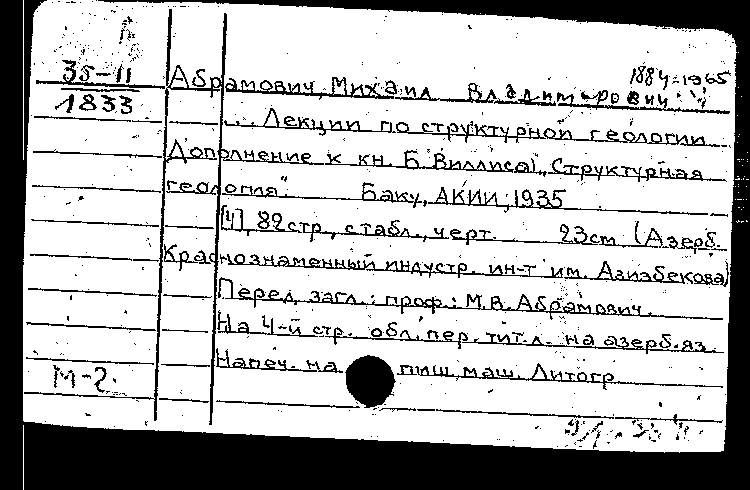 35-11
1833
1884-1965
Абрамович, Михаил Владимирович
... Лекции по структурной геологии
Дополнение к кн. Б. Виллиса „Структурная
геология". Баку, АКИИ, 1935
[4], 82 стр., с табл., черт. 23 cm (Азерб.
Краснознаменный индустр. ин-т им. Азизбекова)
Перед загл.: проф.: М.В. Абрамович.
На 4-й стр. обл. пер. тит. л. на азерб. яз.
Напеч. на пиш. маш. Литогр.
М-2.